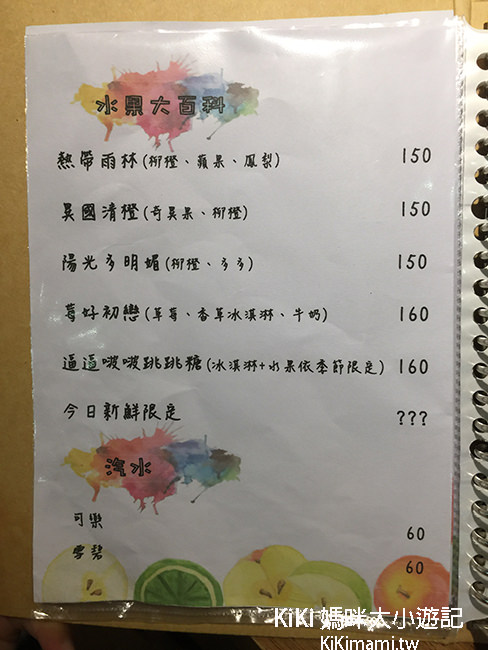 水果大百科
熱帶雨林(柳橙、蘋果、鳳梨) 150
異國清橙(奇異果、柳橙) 150
陽光多明媚(柳橙、多多) 150
莓好初戀(草莓、香草冰淇淋、牛奶) 160
逼逼啵啵跳跳糖(冰淇淋+水果依季節限定) 160
今日新鮮限定 ???
汽水
可樂 60
雪碧 60
KiKI 媽咪大小遊記
KiKimami.tw